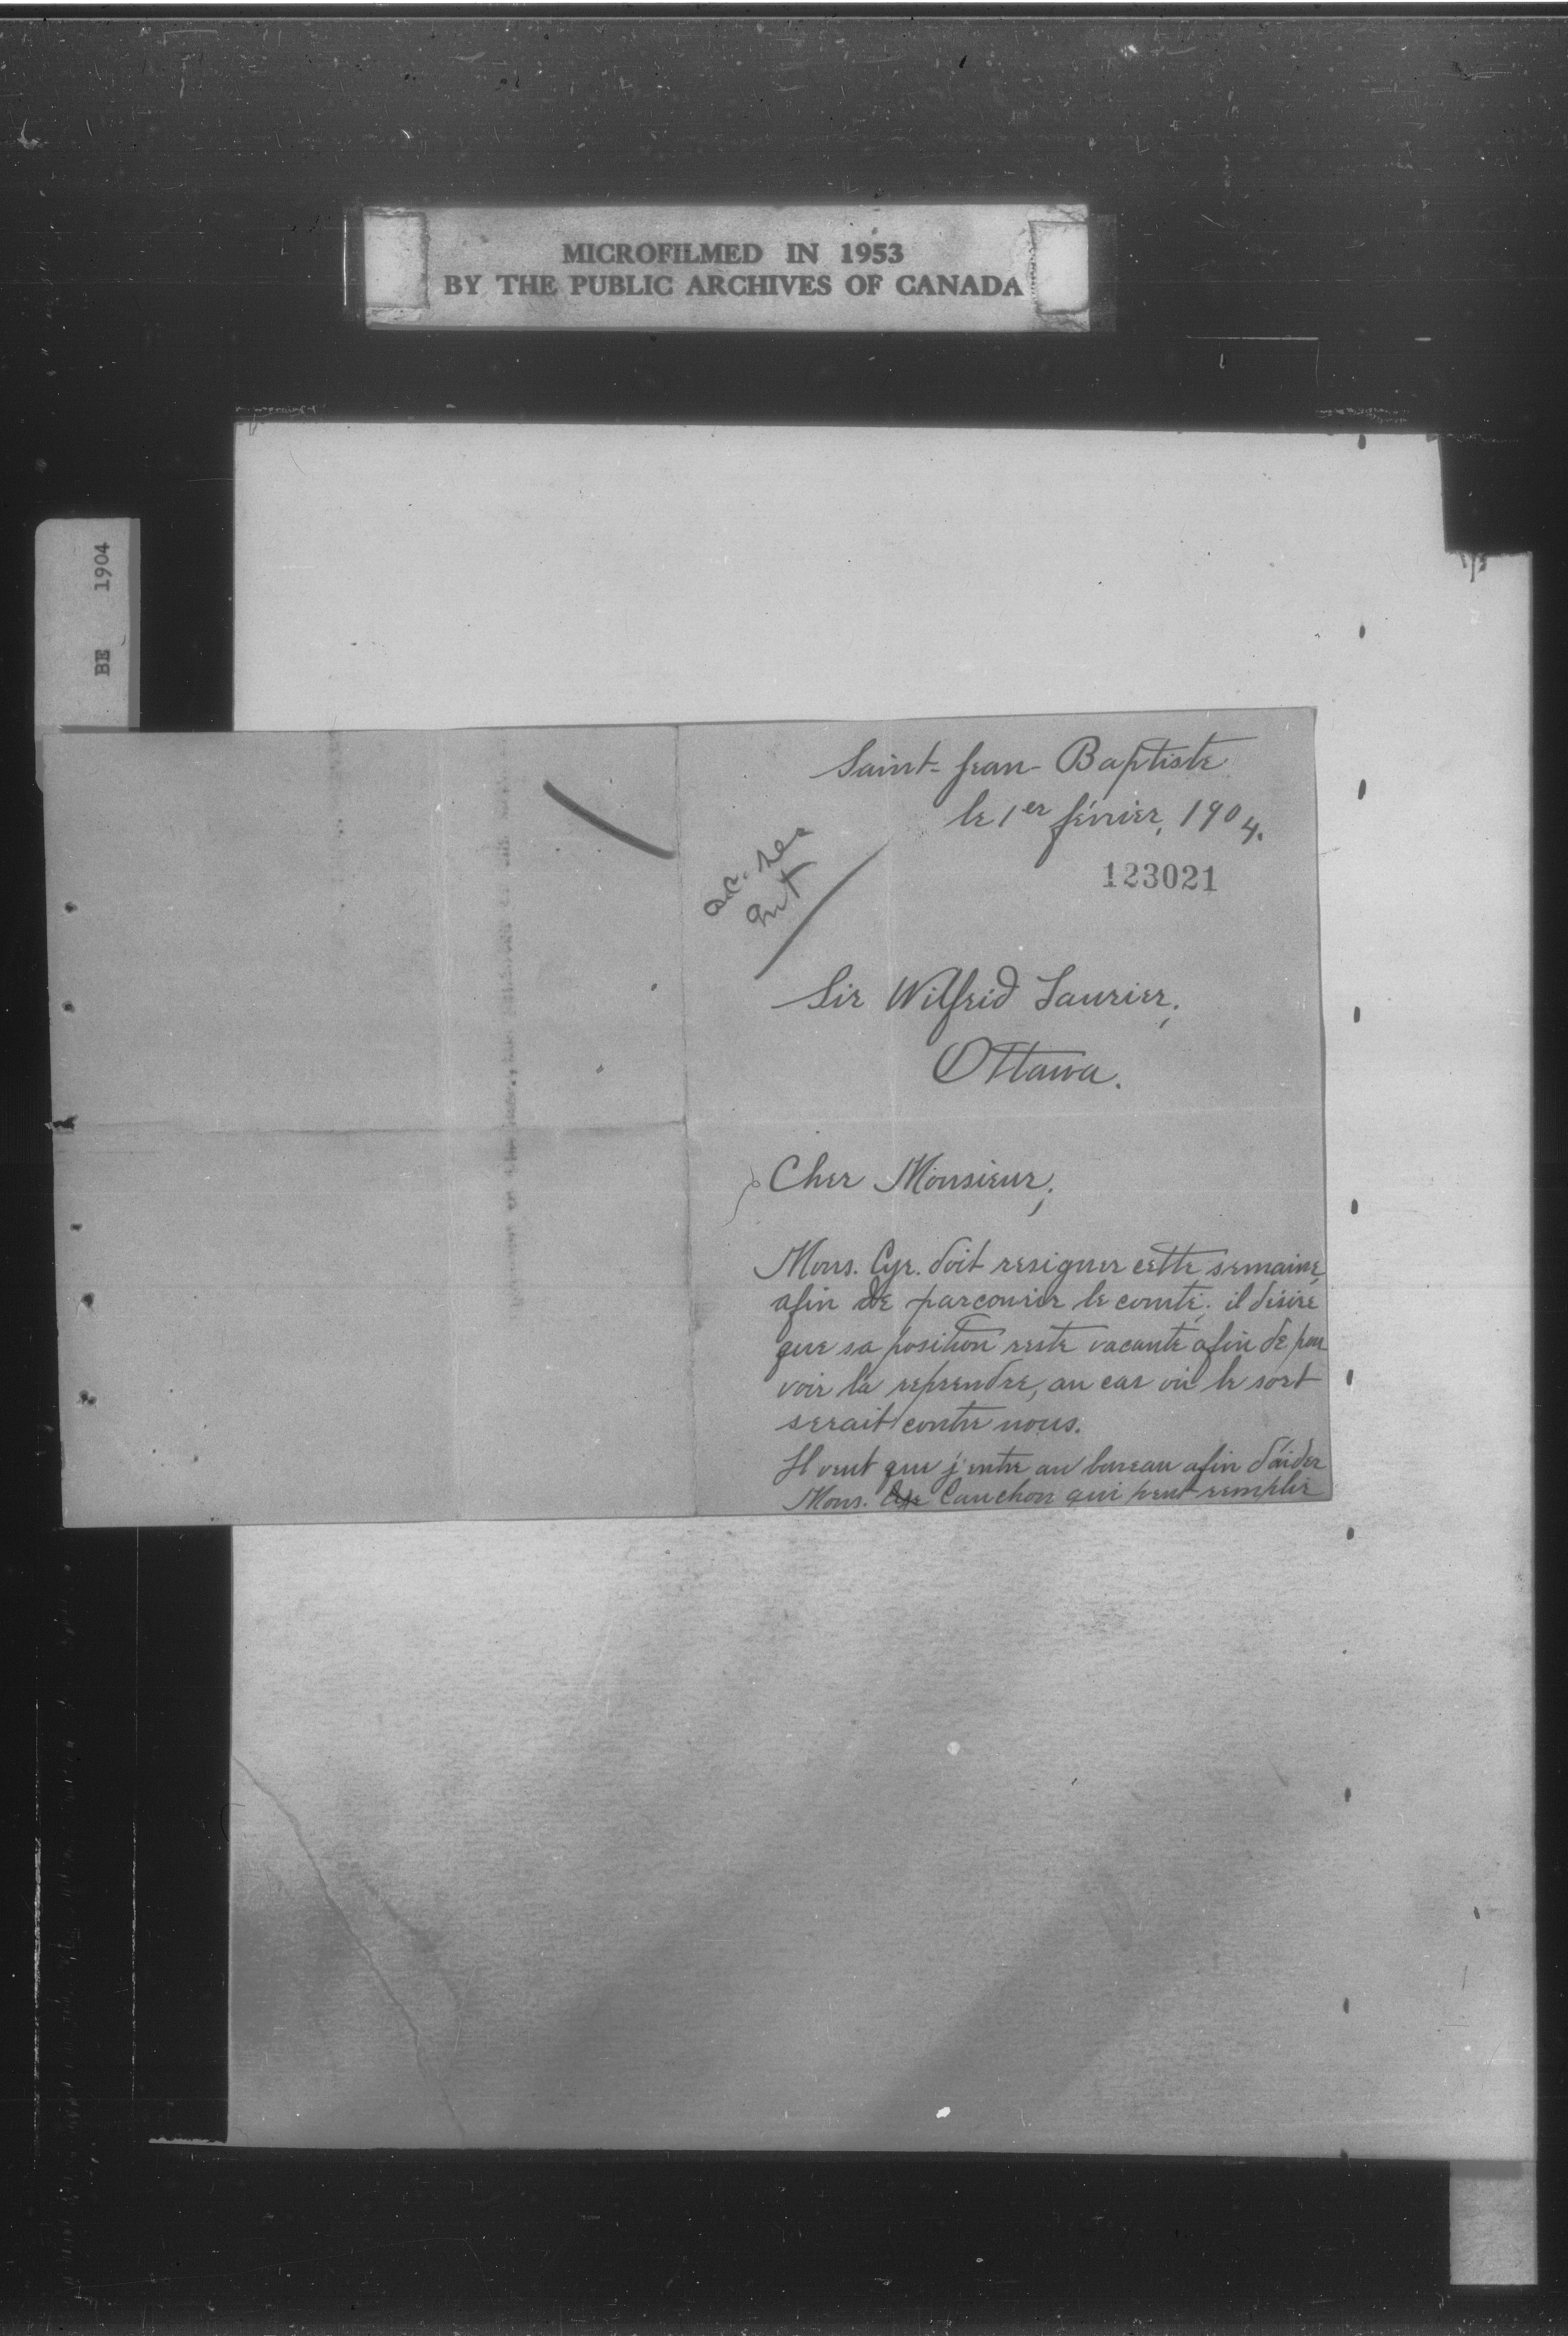 MICROFILMED IN 1953
BY THE PUBLIC ARCHIVES OF CANADA
BE 1904
Saint-Jean-Baptiste
le 1er février, 1904.
123021
Sir Wilfrid Laurier,
Ottawa.
Cher Monsieur,
Mons. Cyr. doit resigner cette semaine,
afin de parcourir le comté; il désire
que sa position reste vacante afin de pou
voir la reprendre, au cas où le sort
serait contre nous.
Il veut que j'entre au bureau afin d'aider
Mons. Cauchon qui peut remplir